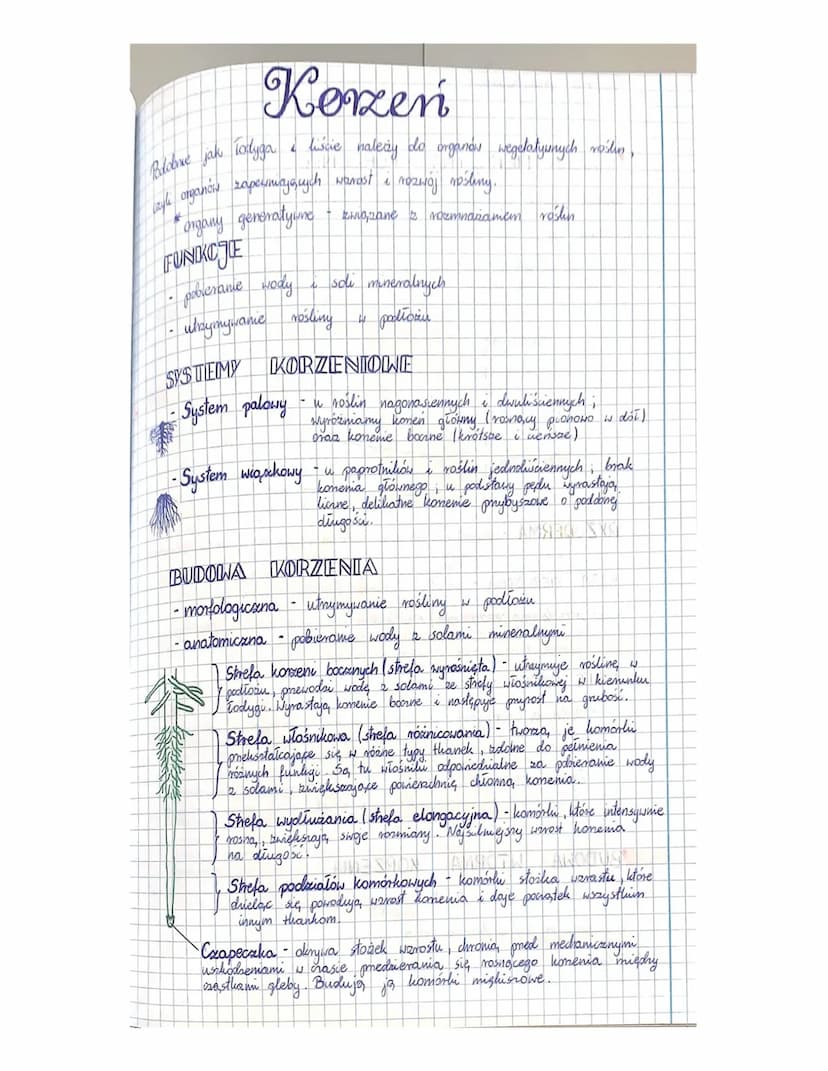 Korzeń
Podobnie jak łodyga i liście należy do organów wegetatywnych roślin,
czyli organów zapewniających wzrost i rozwój rośliny.
* organy generatywne - związane z rozmnażaniem roślin
FUNKCJE
- pobieranie wody i soli mineralnych
- utrzymywanie rośliny w podłożu
SYSTEMY KORZENIOWE
- System palowy - u roślin nagonasiennych i dwuliściennych;
wyróżniamy korzeń główny (rosnący pionowo w dół)
oraz korzenie boczne (krótsze i cieńsze)
- System wiązkowy - u paprotników i roślin jednoliściennych, brak
korzenia głównego, u podstawy pędu wyrastają
liczne, delikatne korzenie przybyszowe o podobnej
długości.
BUDOWA KORZENIA
- morfologiczna - utrzymywanie rośliny w podłożu
- anatomiczna - pobieranie wody z solami mineralnymi
Strefa korzeni bocznych (strefa wyrośnięta) - utrzymuje roślinę w
podłożu, przewodzi wodę z solami ze strefy włośnikowej w kierunku
łodygi. Wyrastają korzenie boczne i następuje przyrost na grubość.
Strefa włośnikowa (strefa różnicowania) - tworzą ją komórki
przekształcające się w różne typy tkanek, zdolne do pełnienia
różnych funkcji. Są tu włośniki odpowiedzialne za pobieranie wody
z solami, zwiększające powierzchnię chłonną korzenia.
Strefa wydłużania (strefa elongacyjna) - komórki, które intensywnie
rosną, zwiększają swoje rozmiary. Najsilniejszy wzrost korzenia
na długość.
Strefa podziałów komórkowych - komórki stożka wzrastu, które
dzieląc się powodują wzrost korzenia i daje początek wszystkim
innym tkankom.
Czapeczka - okrywa stożek wzrostu, chronią przed mechanicznymi
uszkodzeniami w czasie przedzierania się rosnącego korzenia między
cząstkami gleby. Budują ją komórki miękiszowe.